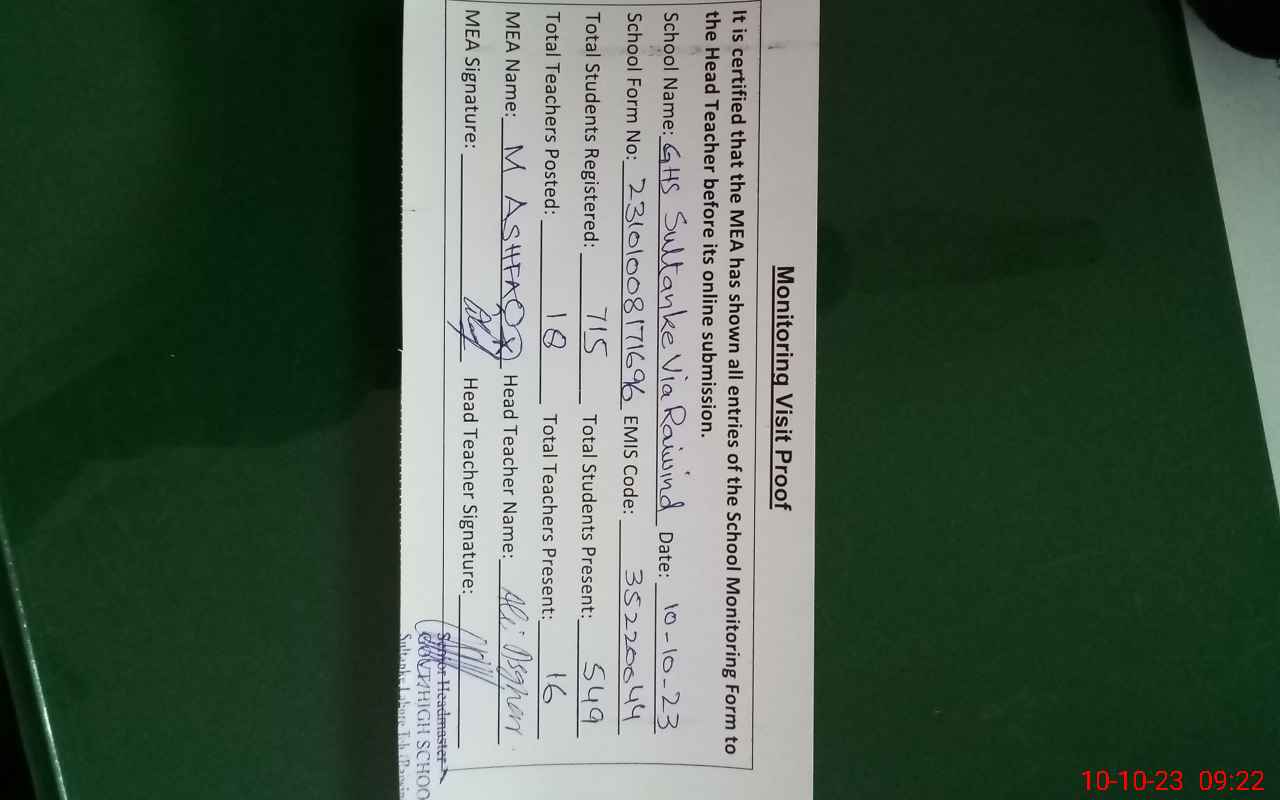 Monitoring Visit Proof
It is certified that the MEA has shown all entries of the School Monitoring Form to
the Head Teacher before its online submission.
School Name: GHS Sultanke Via Raiwind Date: 10-10-23
School Form No: 23101008171696 EMIS Code: 35220044
Total Students Registered: 715 Total Students Present: 549
Total Teachers Posted: 18 Total Teachers Present: 16
MEA Name: M ASHFAQ Head Teacher Name: Ali Asghar
MEA Signature: Head Teacher Signature:
Senior Headmaster
GOVT HIGH SCHOO
Sultanke Lahore Teh
10-10-23 09:22